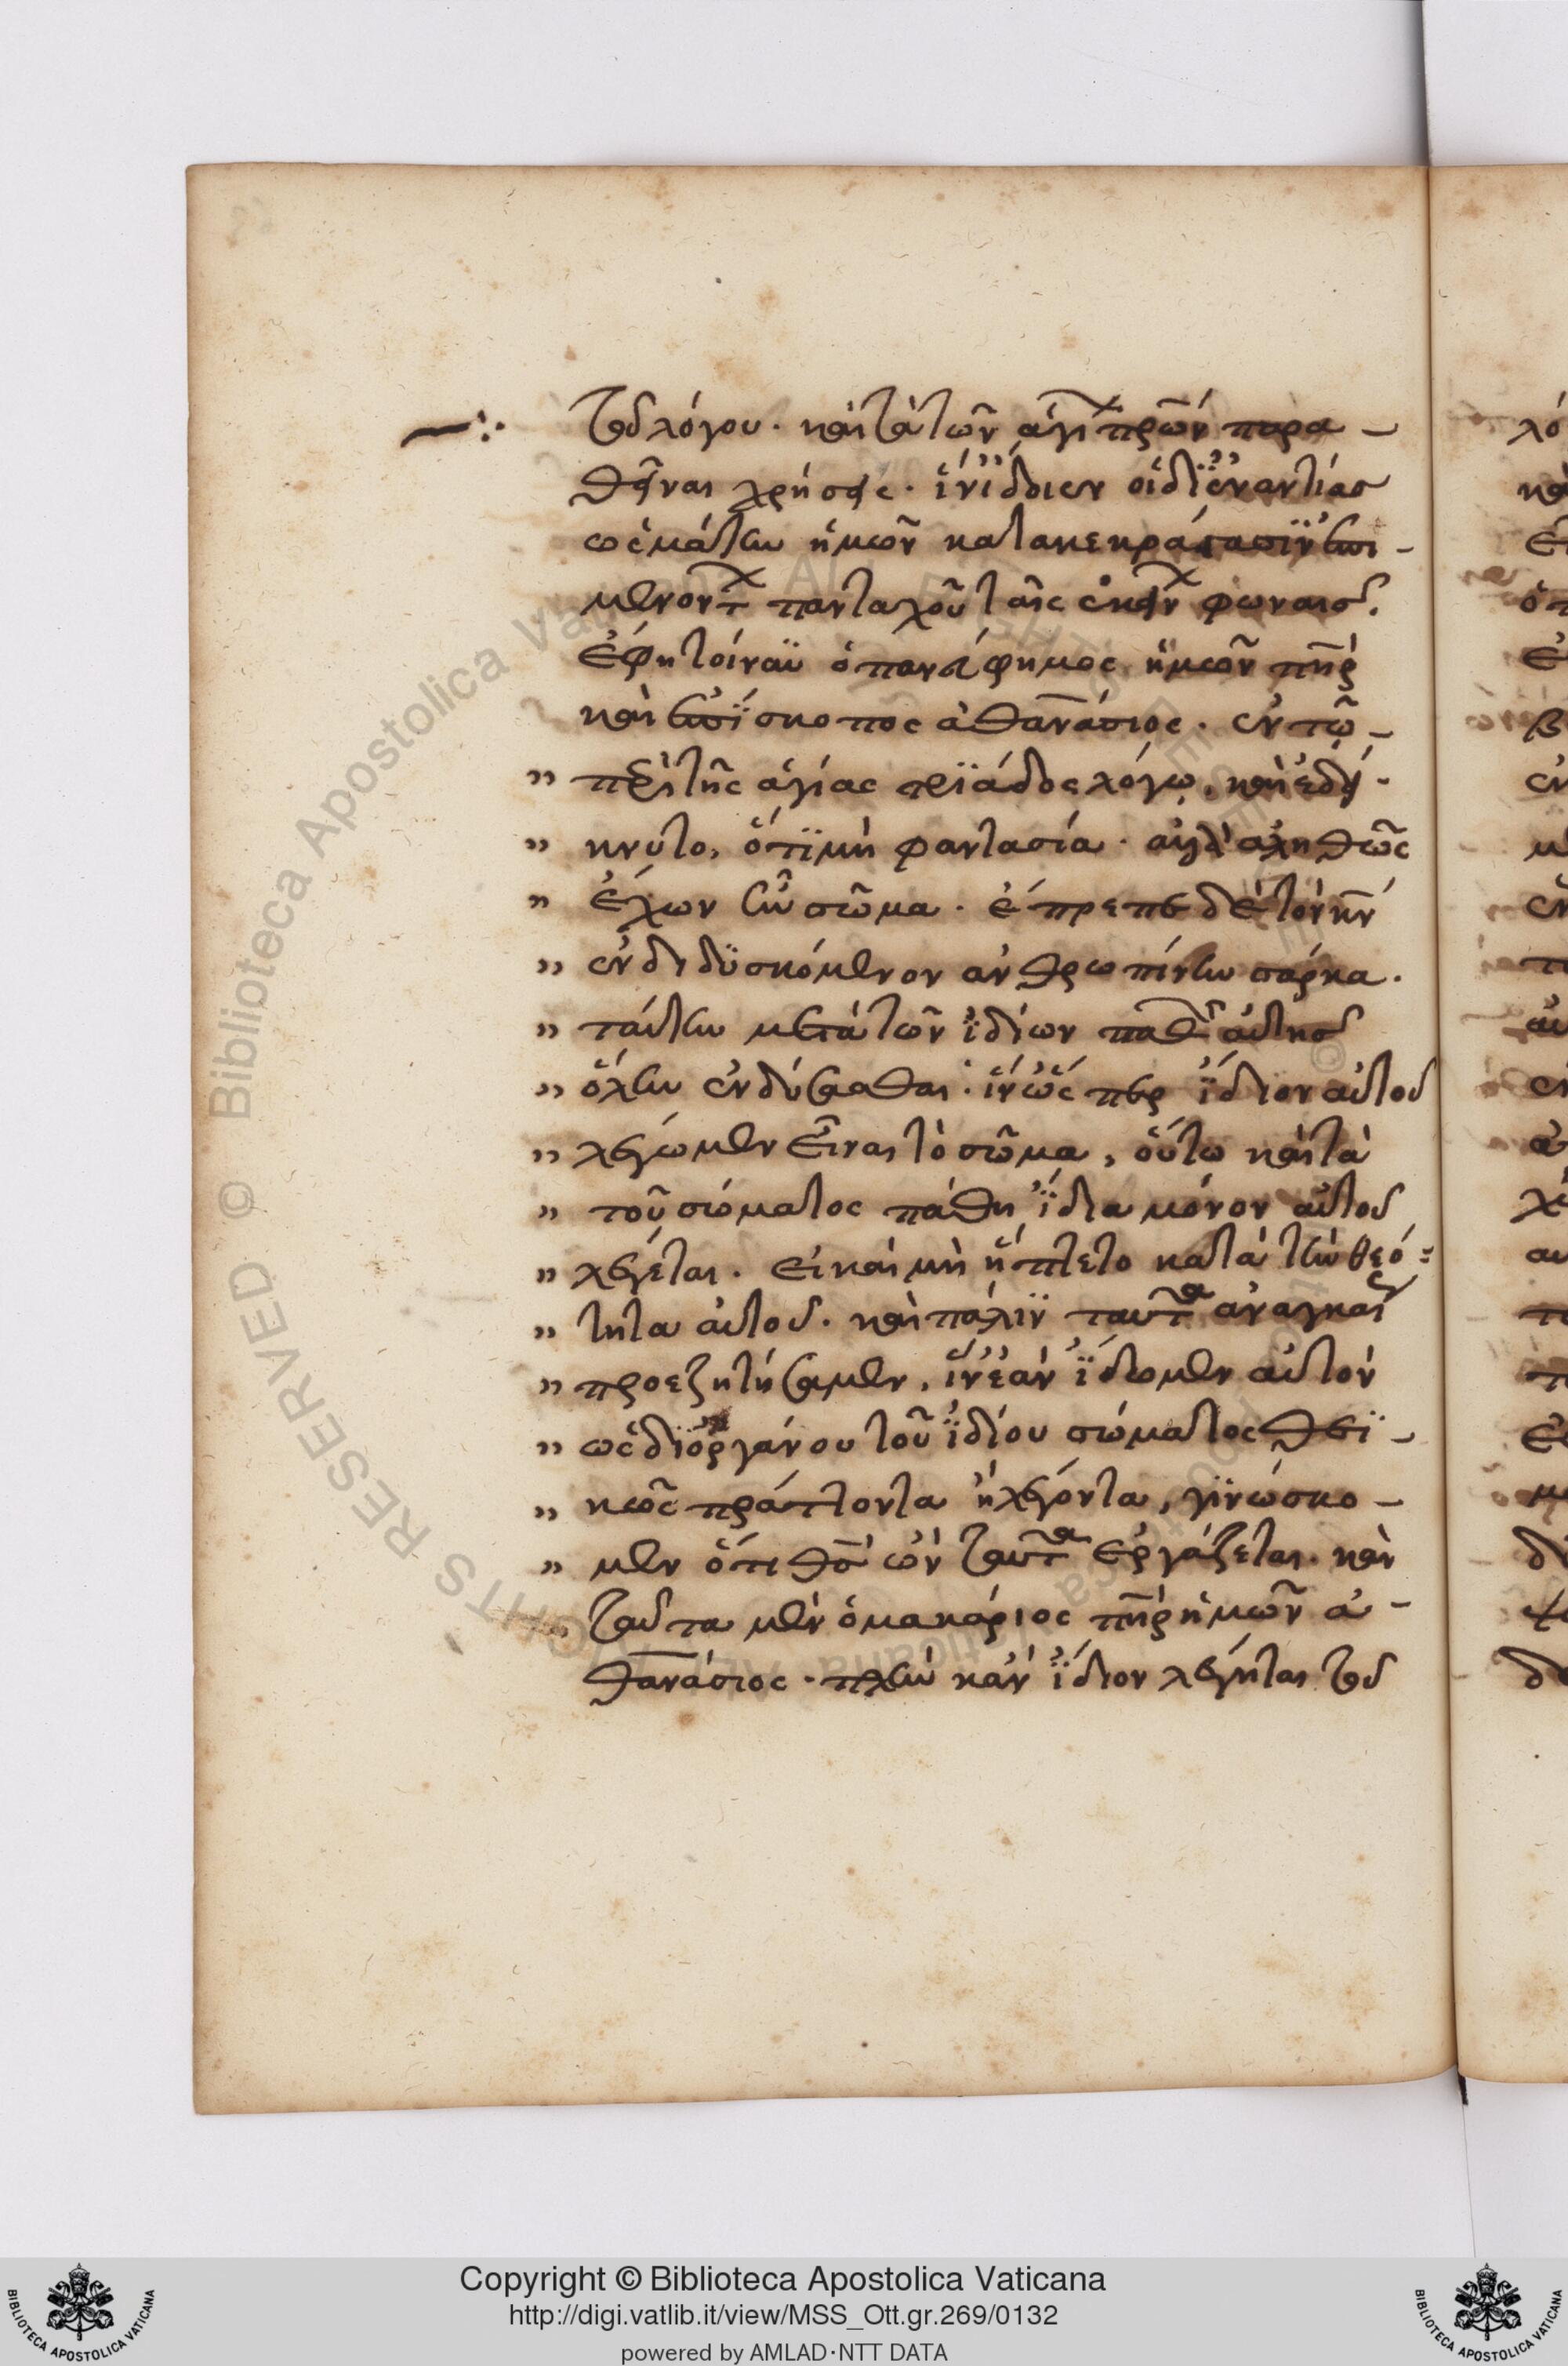 τοῦ λόγου. καὶ τὰ τῶν ἁγί πρῶν παρα -
θεῖναι χρήσεις. ἵν' ἴδοιεν οἱ δι' ἐναντίας
ὡς μάτην ἡμῶν κατακεκράγασιν ἑπο -
μένοντ πανταχοῦ ταῖς ἐκείν φωναῖς.
ἔφη τοίνυν ὁ πανεύφημος ἡμῶν πὴρ
καὶ ἐπίσκοπος ἀθανάσιος. ἐν τῷ -
" περὶ τῆς ἁγίας τριάδος λόγω. καὶ ἐδεί -
" κνυτο, ὅτι μὴ φαντασία. ἀλλ' ἀληθῶς
" ἔχων ἦν σῶμα. ἔπρεπε δὲ τὸν κν
" ἐνδιδυσκόμενον ἀνθρωπίνην σάρκα.
" ταύτην μετὰ τῶν ἰδίων παθ αὐτῆς
" ὅλην ἐνδύσασθαι. ἵν' ὥς περ ἴδιον αὐτοῦ
" λέγωμεν εἶναι τὸ σῶμα, οὕτω καὶ τὰ
" τοῦ σώματος πάθη ἴδια μόνον αὐτοῦ
" λέγεται. εἰ καὶ μὴ ἥπτετο κατὰ τὴν θεό -
" τητα αὐτοῦ. καὶ πάλιν ταῦτα ἀναγκαί
" προεζητήσαμεν, ἵν' ἐὰν ἴδωμεν αὐτὸν
" ὡς δι' ὀργάνου τοῦ ἰδίου σώματος θεϊ -
" κῶς πράττοντα ἢ λέγοντα, γινώσκο -
" μεν ὅτι θς ὢν ταῦτα ἐργάζεται. καὶ
" ταῦτα μὲν ὁ μακάριος πὴρ ἡμῶν ἀ -
θανάσιος. πλὴν κἂν ἴδιον λέγηται τοῦ
Copyright © Biblioteca Apostolica Vaticana
http://digi.vatlib.it/view/MSS_Ott.gr.269/0132
powered by AMLAD·NTT DATA